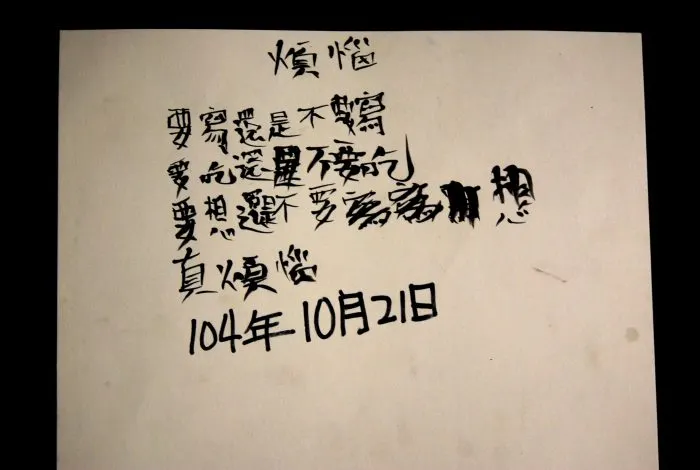 煩惱
要寫還是不要寫
要吃還是不要吃
要想還是不要寫寫想
真煩惱
104年10月21日